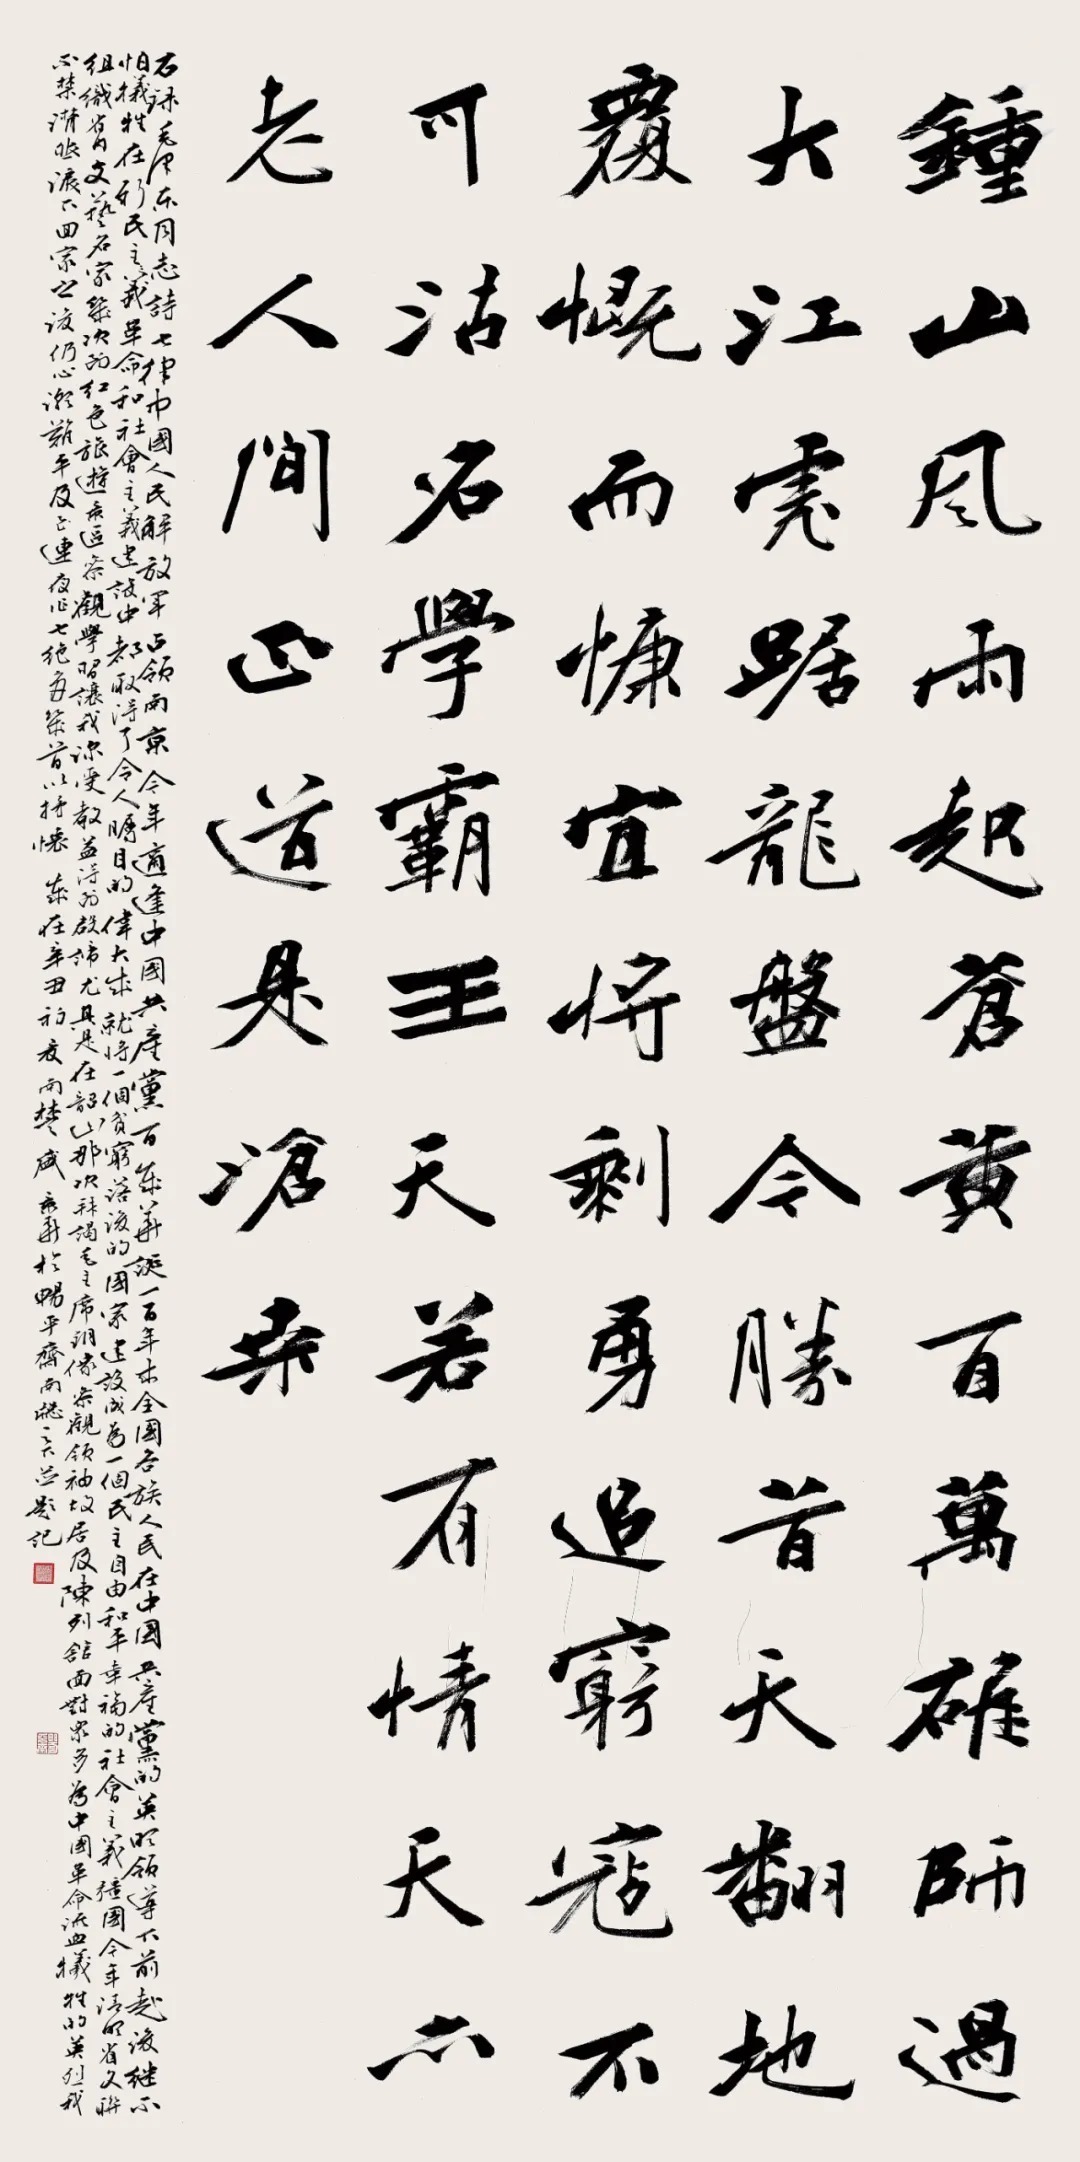 鍾山風雨起蒼黄百萬雄師過
大江虎踞龍盤今勝昔天翻地
覆慨而慷宜將剩勇追窮寇不
可沽名學霸王天若有情天亦
老人間正道是滄桑
右録毛澤東同志詩七律中國人民解放軍占領南京今年適逢中國共産黨百年華誕一百年来全國各族人民在中國共産黨的英明領導下前赴後继不
怕犧牲在新民主義革命和社會主義建設中都取得了令人矚目的偉大成就將一個貧窮落後的國家建設成為一個民主自由和平幸福的社會主義强國今年清明省文聯
組織省内文藝名家幾次到紅色旅遊景區參觀學習讓我深受教益得到啟諦尤其是在韶山那次拜謁毛主席銅像參觀領袖故居及陳列館面對衆多為中國革命流血犧牲的英烈我
不禁潸然淚下回家之後仍心潮難平及已連夜作七绝多幾首以抒懷 歲在辛丑初夏南楚盛景華於暢平齋南窓之下并題記